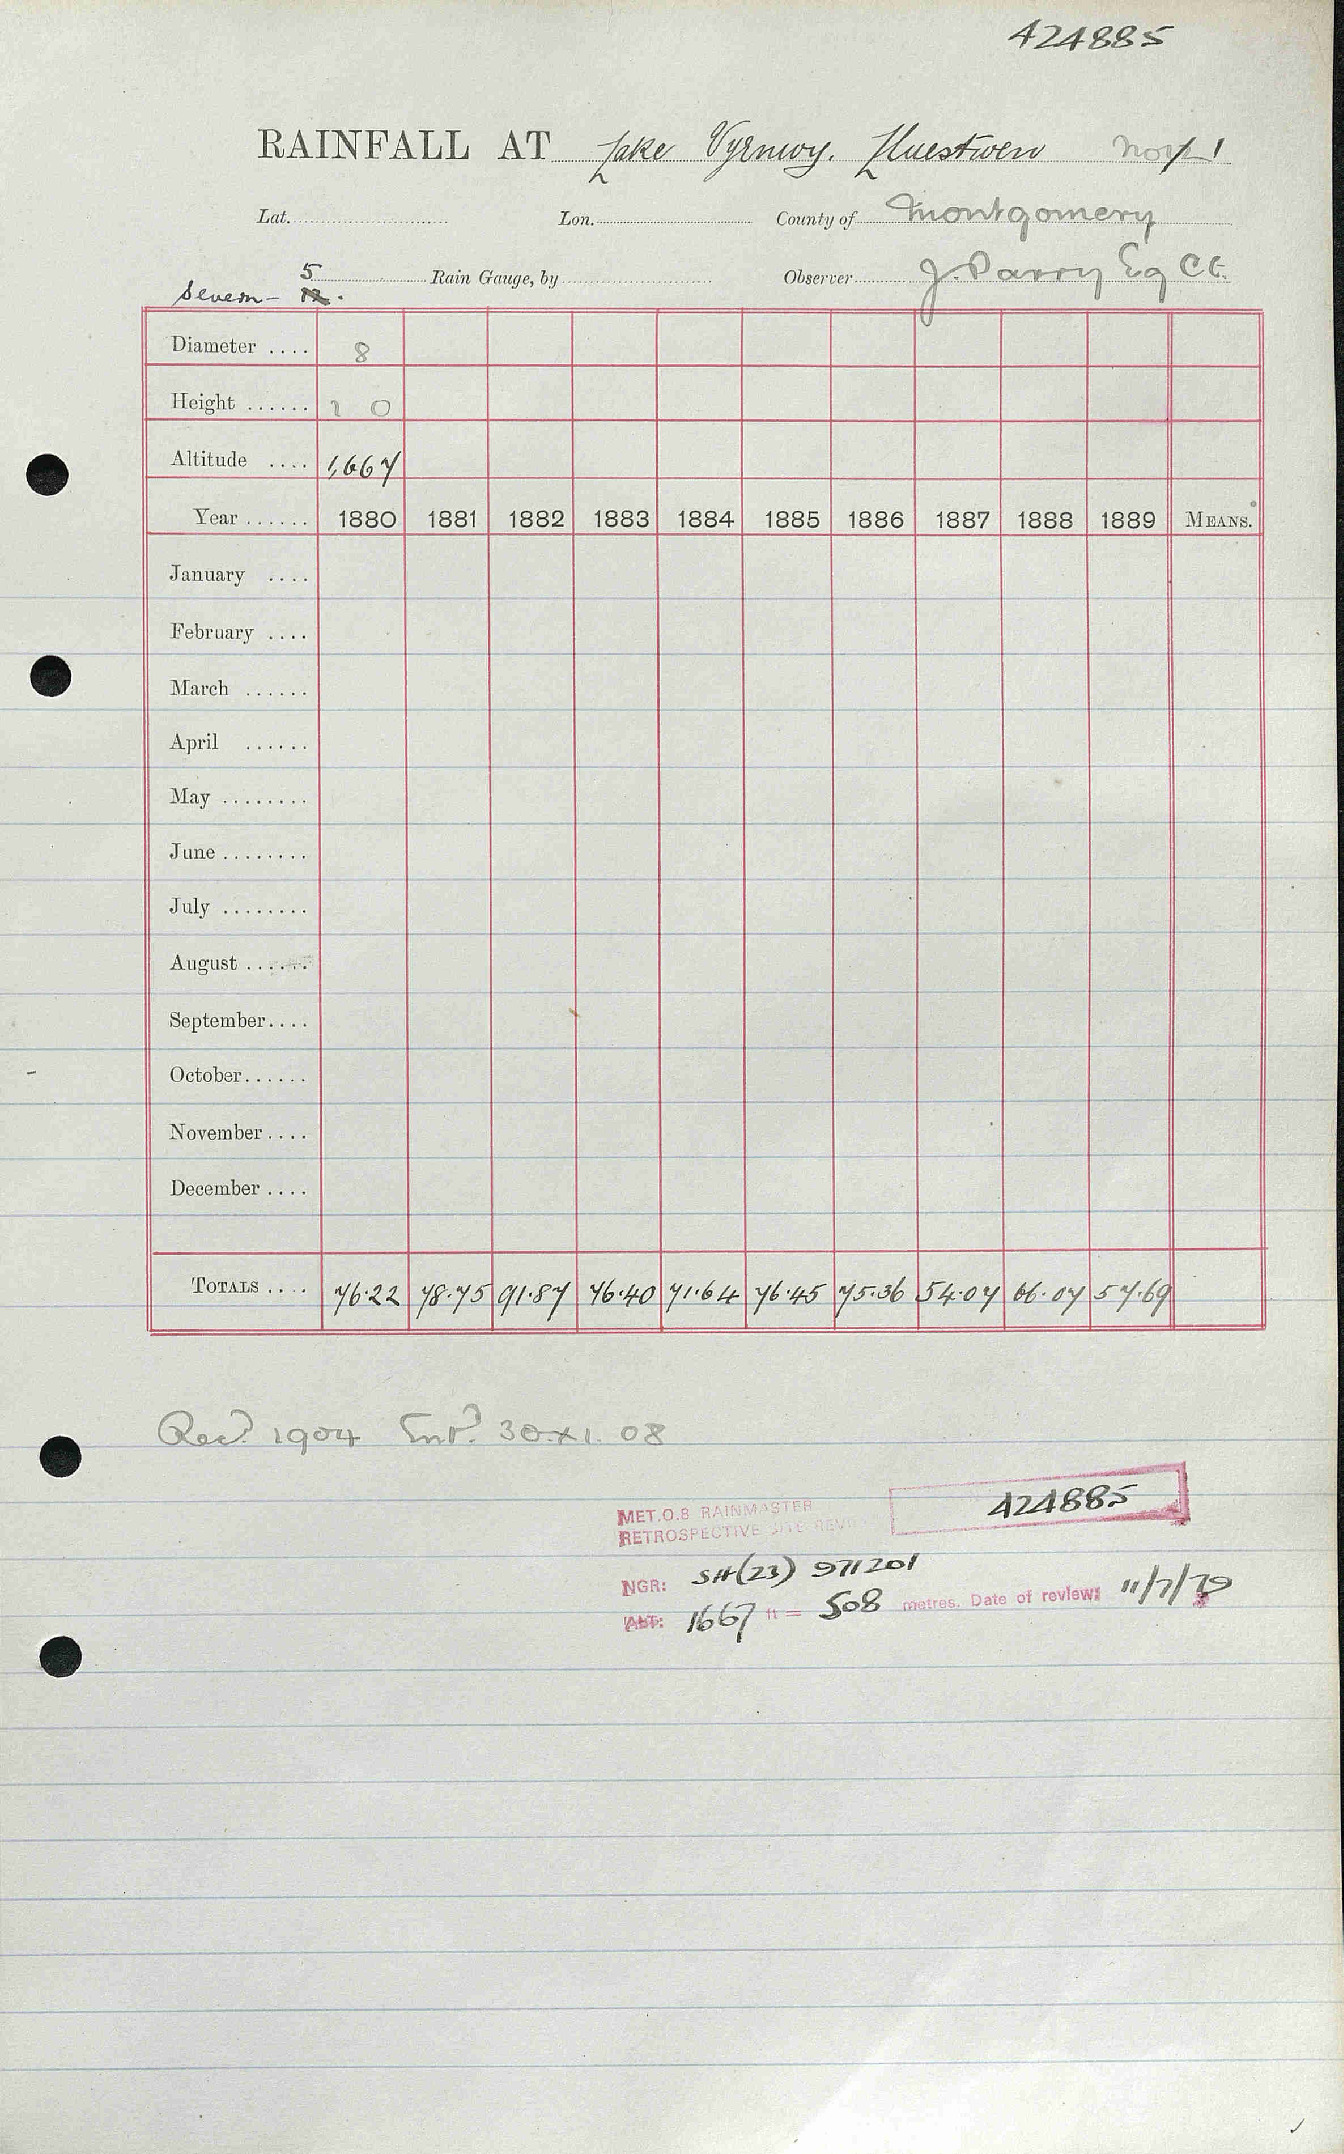 424885
RAINFALL AT Lake Vyrnwy. Lluestwen No 1
Lat. Lon. County of Montgomery
5 Rain Gauge, by Observer J. Parry Esq CE.
Severn -
Diameter .... 8
Height ...... 1 0
Altitude .... 1,667
Year ...... 1880 1881 1882 1883 1884 1885 1886 1887 1888 1889 MEANS.
January ....
February ....
March ......
April ......
May ........
June ........
July ........
August ......
September....
October......
November ....
December ....
TOTALS .... 76.22 78.75 91.87 76.40 71.64 76.45 75.36 54.07 66.07 57.69
Recd. 1904 Entd. 30.XI.08
MET.O.8 RAINMASTER
RETROSPECTIVE SITE REVIEW 424885
NGR: SH(23) 971201
ALT: 1667 ft = 508 metres. Date of review: 11/7/79